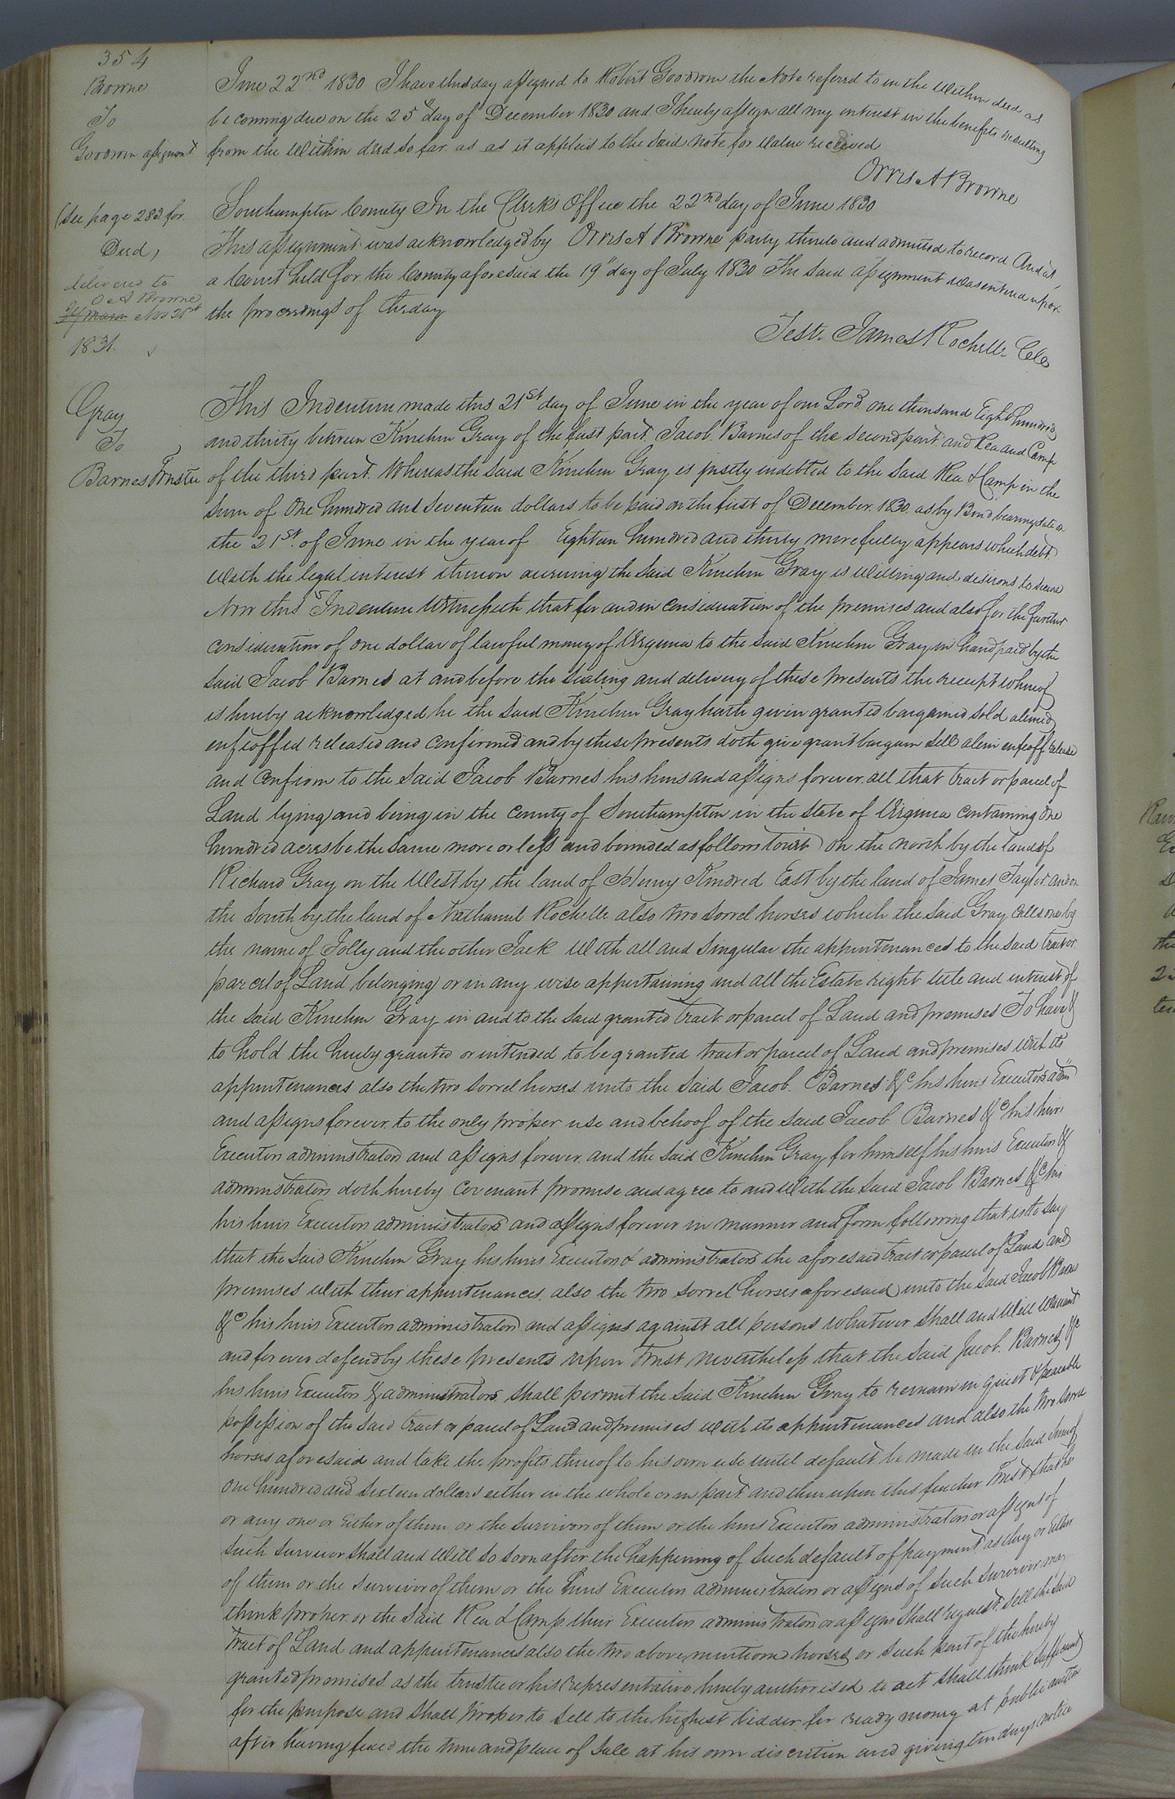 354
Browne
To
Goodwin assignmt
(See page 282 for
Deed,
delivered to
O A Browne
Nov 21st
1831.
June 22nd 1830 I have this day assigned to Robert Goodwin the Note referred to in the within deed as
becoming due on the 25th day of December 1830 and I hereby assign all my interest in the benefits resulting
from the within deed so far as as it applies to the said note for value received
Orris A Browne
Southampton County In the Clerk's Office the 22nd day of June 1830
This assignment was acknowledged by Orris A Browne party thereto and admitted to record And at
a Court held for the County aforesaid the 19th day of July 1830 The said assignment was entered upon
the proceedings of the day
Teste. James Rochelle Clk
Gray
To
Barnes Trustee
This Indenture made this 21st day of June in the year of our Lord one thousand Eight hundred
and thirty between Kinchen Gray of the first part. Jacob Barnes of the second part and Rea and Camp
of the third part. Whereas the said Kinchen Gray is justly indebted to the said Rea & Camp in the
sum of One hundred and seventeen dollars to be paid on the first of December 1830 as by Bond bearing date on
the 21st of June in the year of Eighteen hundred and thirty more fully appears which debt
with the legal interest thereon accruing the said Kinchen Gray is willing and desirous to secure
Now this Indenture Witnesseth that for and in consideration of the premises and also for the further
consideration of one dollar of lawful money of Virginia to the said Kinchen Gray in hand paid by the
said Jacob Barnes at and before the sealing and delivery of these presents the receipt whereof
is hereby acknowledged he the said Kinchen Gray hath given granted bargained sold aliened
enfeoffed released and confirmed and by these presents doth give grant bargain sell alien enfeoff release
and confirm to the said Jacob Barnes his heirs and assigns forever. all that tract or parcel of
Land lying and being in the county of Southampton in the State of Virginia containing One
hundred acres be the same more or less and bounded as follows towit on the north by the land of
Richard Gray on the West by the land of Henry Kindred East by the land of James Taylor and on
the South by the land of Nathaniel Rochelle also two sorrel horses which the said Gray calls one by
the name of Jolly and the other Jack with all and singular the appurtenances to the said tract or
parcel of Land belonging or in any wise appertaining and all the Estate right title and interest of
the said Kinchen Gray in and to the said granted tract or parcel of Land and premises To have &
to hold the hereby granted or intended to be granted tract or parcel of Land and premises with its
appurtenances also the two sorrel horses unto the said Jacob Barnes &c his heirs Executors adm
and assigns forever to the only proper use and behoof of the said Jacob Barnes &c his heirs
Executors administrators and assigns forever. and the said Kinchen Gray for himself his heirs Executors &
administrators doth hereby covenant promise and agree to and with the said Jacob Barnes &c his
his heirs Executors administrators and assigns forever in manner and form following that is to say
that the said Kinchen Gray his heirs Executors & administrators the aforesaid tract or parcel of Land and
premises with their appurtenances. also the two sorrel horses aforesaid unto the said Jacob Barnes
&c his heirs Executors administrators and assigns against all persons whatever shall and will warrant
and forever defend by these presents upon Trust nevertheless that the said Jacob Barnes &c
his heirs Executors & administrators shall permit the said Kinchen Gray to remain in quiet & peaceable
possession of the said tract or parcel of Land and premises with its appurtenances and also the two sorrel
horses aforesaid and take the profits thereof to his own use until default be made in the said sum of
One hundred and sixteen dollars either in the whole or in part and then upon this further Trust that he
or any one or either of them or the survivors of them or the heirs Executors administrators or assigns of
such survivor shall and will so soon after the happening of such default of payment as they or either
of them or the survivor of them or the heirs Executors administrators or assigns of such survivor may
think proper. or the said Rea & Camp their Executors administrators or assigns shall request. sell the said
tract of Land and appurtenances also the two above mentioned horses or such part of the hereby
granted premises as the trustee or his representative hereby authorised to act shall think sufficient
for the purpose and shall proper to sell to the highest bidder for ready money at public auction
after having fixed the time and place of Sale at his own discretion and giving ten days notice